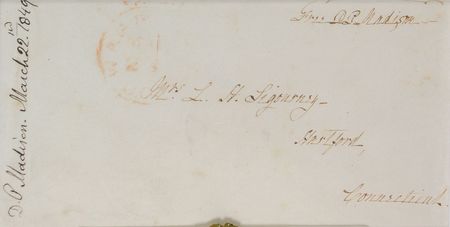 Free D P Madison
Mrs. L. H. Sigourney
Hartford,
Connecticut
D P Madison. March 22nd 1849